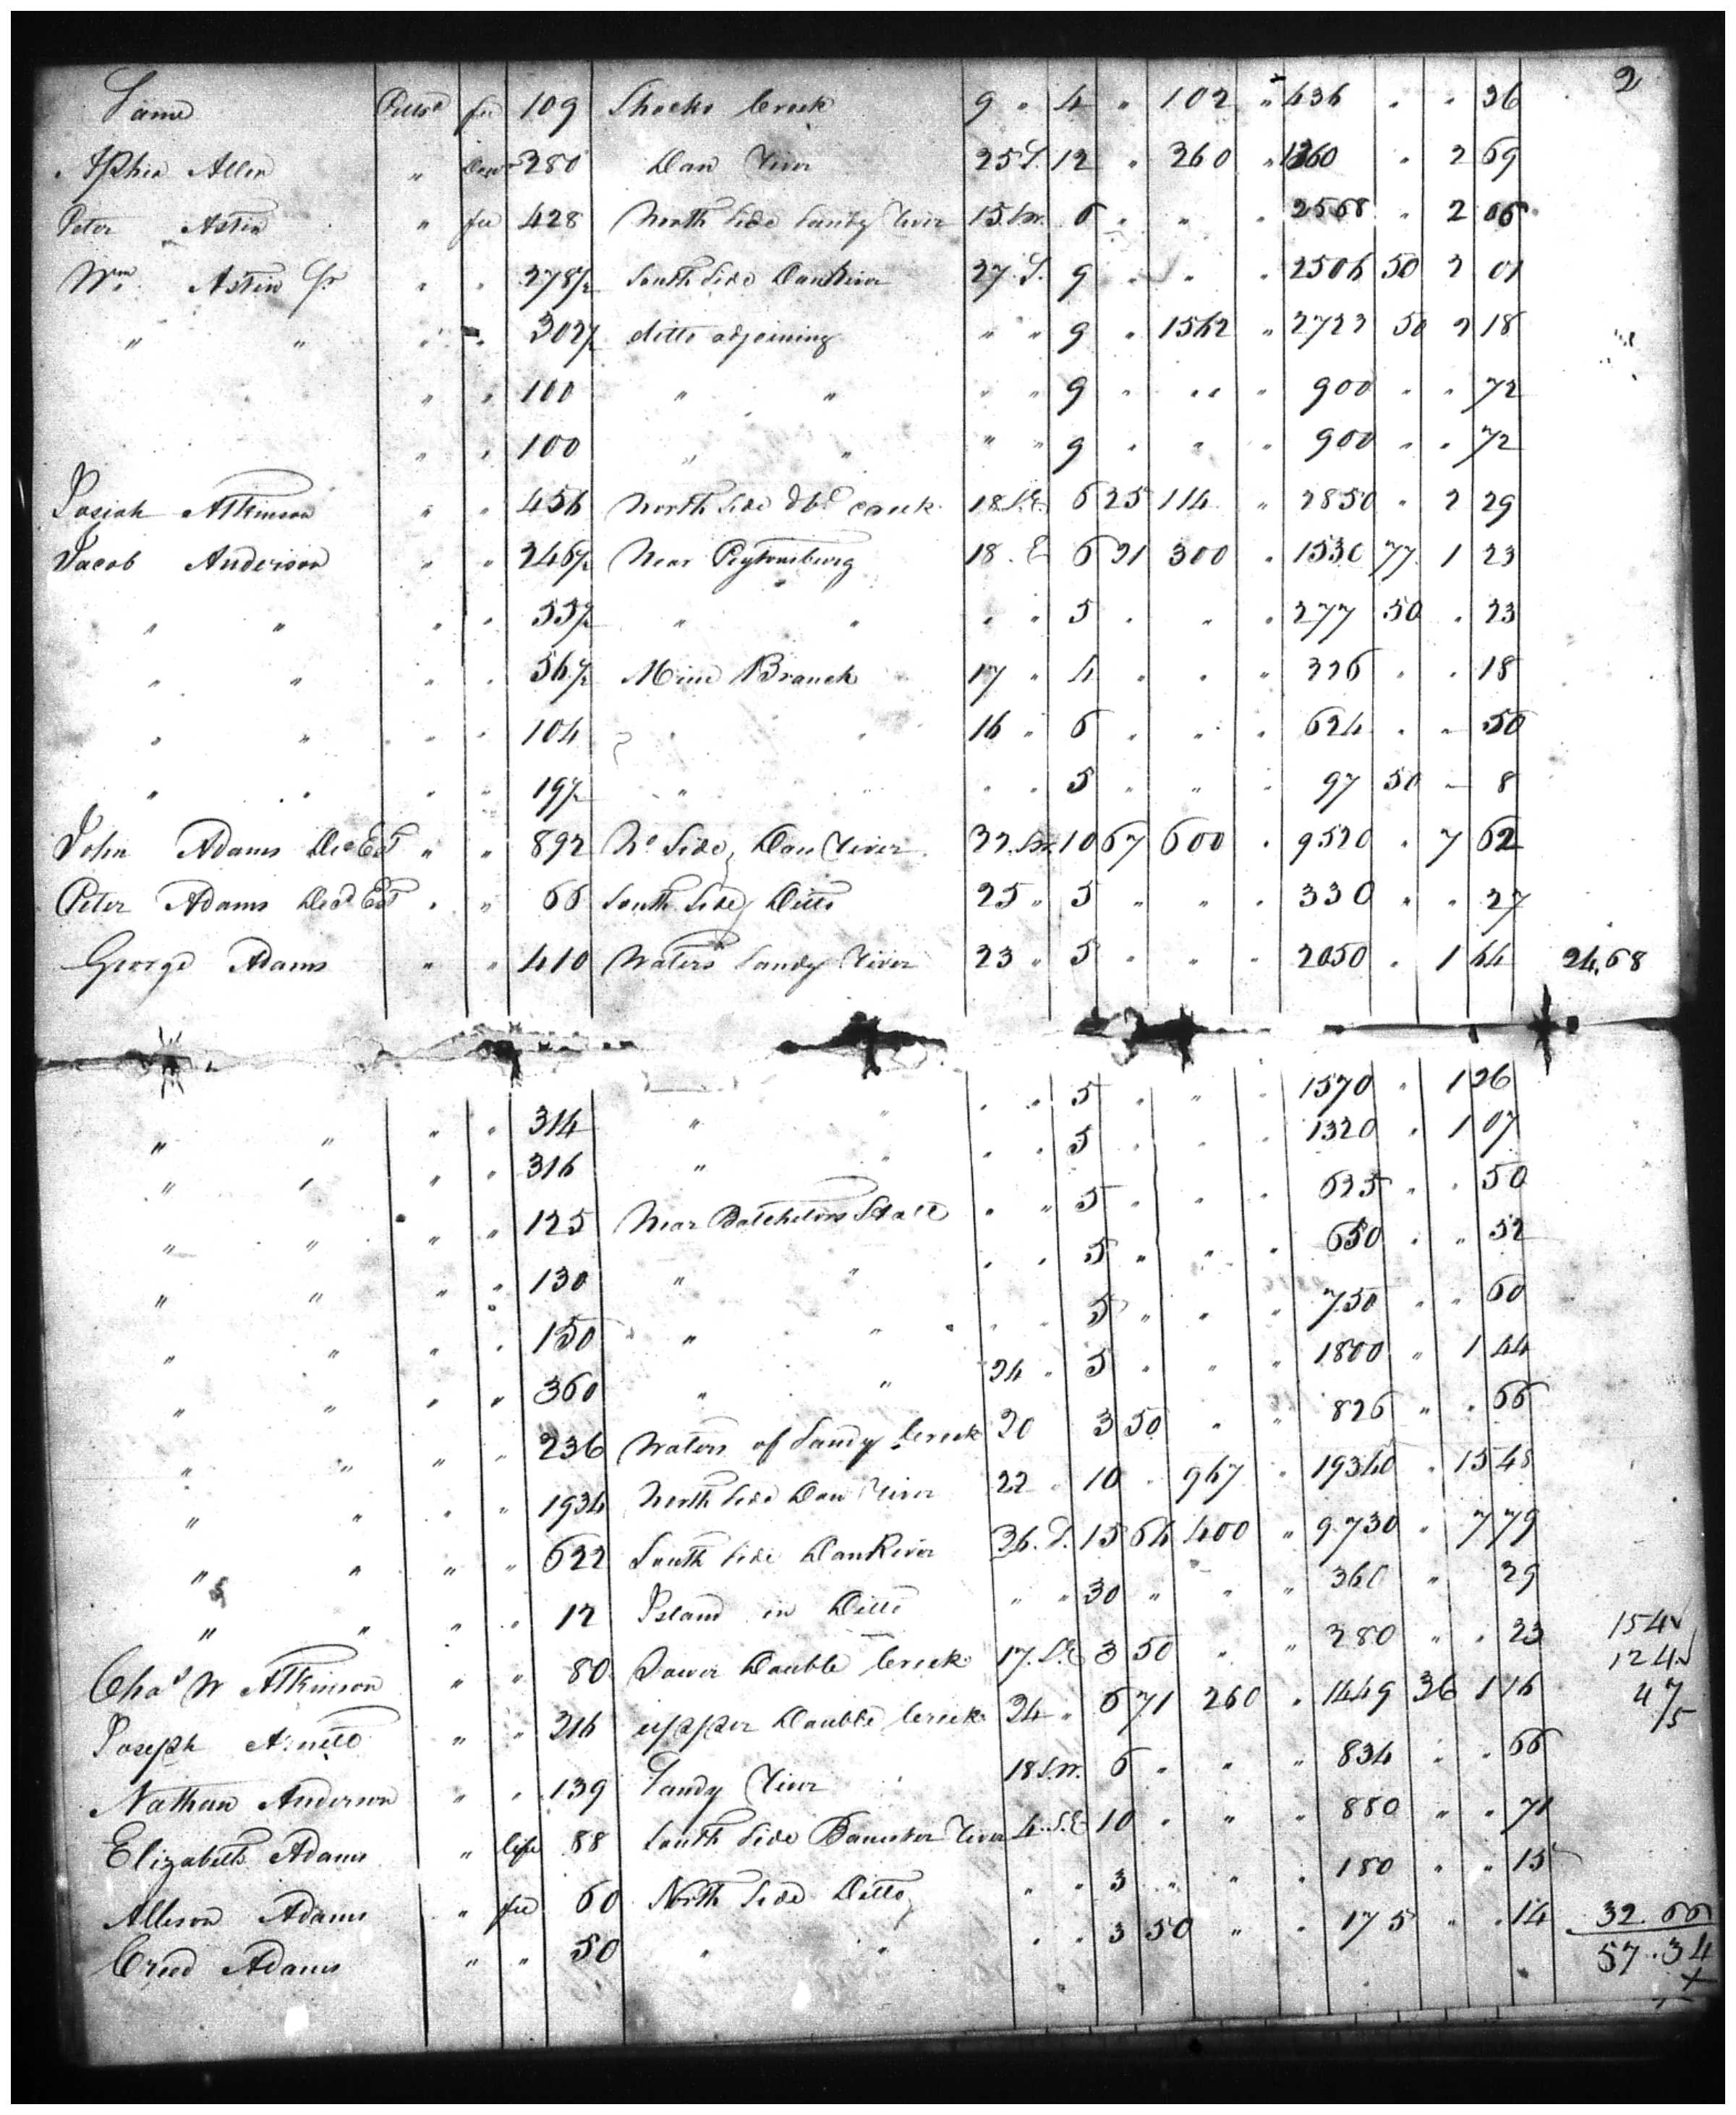 2
Same Pittsa fee 109 Shocko Creek 9 " 4 " 102 " 436 " " 36
Allen " 280 Dan River 25 S. 12 " 260 " 1360 " 2 69
Peter Astin " fee 428 North Side Sandy River 15 S.W. 6 " " " 2568 " 2 06
Wm Astin Sr " " 278½ South Side Dan River 27 S. 9 " " " 2506 50 2 01
" " " " 302½ ditto adjoining " " 9 " 1562 " 2723 50 2 18
" " 100 " " " " 9 " " " 900 " " 72
" " 100 " " " " 9 " " " 900 " " 72
Josiah Atkinson " " 456 North Side Dbl Creek 18 S.E. 6 25 114 " 2850 " 2 29
Jacob Anderson " " 246½ Near Peytonsburg 18 E 6 21 300 " 1530 77 1 23
" " " " 55½ " " " " 5 " " " 277 50 " 23
" " " " 56½ Mine Branch 17 " 4 " " " 226 " " 18
" " " " 104 " 16 " 6 " " " 624 " " 50
" " " " 19½ " " " " 5 " " " 97 50 " 8
John Adams Dec Est " " 892 No Side Dan River 22 S.W. 10 67 600 " 9520 " 7 62
Peter Adams Decd Est " " 66 South Side Ditto 25 " 5 " " " 330 " " 27
George Adams " " 410 Waters Sandy River 23 " 5 " " " 2050 " 1 64 24,68
" " " " 314 " " " " 5 " " " 1570 " 1 26
" " " " 316 " " " " 5 " " " 1320 " 1 07
" " " " 125 Near Batchelors Hall " " 5 " " " 625 " " 50
" " " " 130 " " " " 5 " " " 650 " " 52
" " " " 150 " " " " 5 " " " 750 " " 60
" " " " 360 " " 24 " 5 " " " 1800 " 1 44
" " " " 236 Waters of Sandy Creek 20 3 50 " " 826 " " 66
" " " " 1934 North Side Dan River 22 " 10 " 967 " 19340 " 15 48
" " " " 622 South Side Dan River 26 S. 15 64 400 " 9730 " 7 79
" " " " 12 Island in Ditto " " 30 " " " 360 " 29
Chas W Atkinson " " 80 Lower Double Creek 17 S.E 3 50 " " 280 " " 23 154
124
Joseph " " 216 upper Double Creek 24 " 6 71 260 " 1449 36 1 16 47
/5
Nathan Anderson " " 139 Sandy River 18 S.W. 6 " " " 834 " " 66
Elizabeth Adams " life 88 South Side Banister River 4 S.E 10 " " " 880 " " 71
Allison Adams " fee 60 North Side Ditto " " 3 " " " 180 " " 15
Creed Adams " " 50 " " " " 3 50 " " 175 " " 14 32.66
57.34